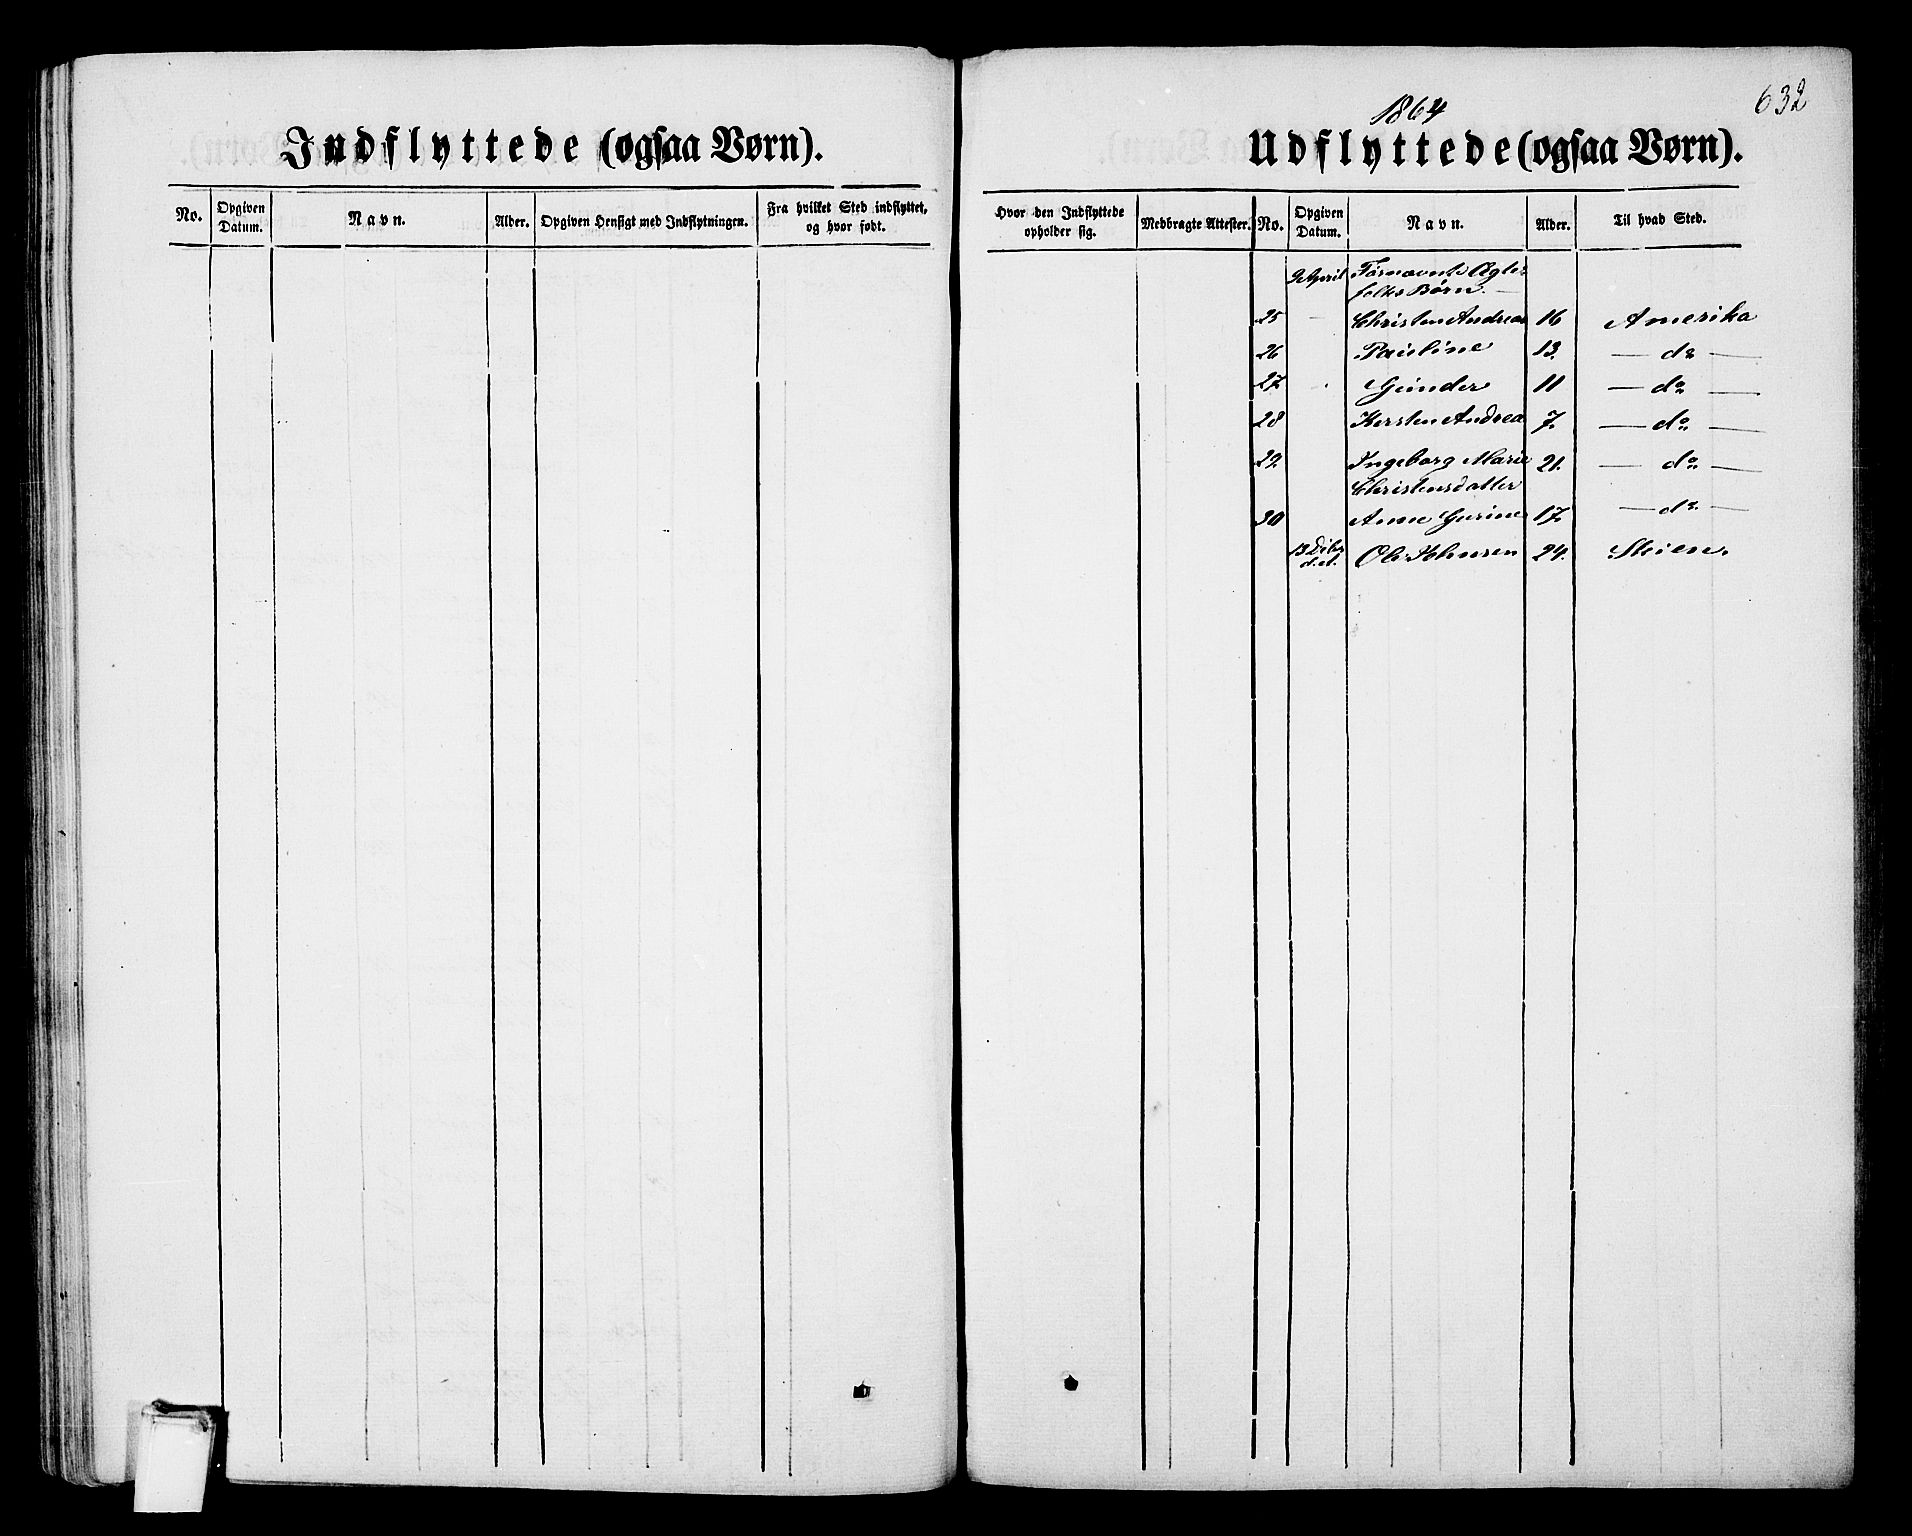 Indflyttede (ogsaa Børn).
No.
Opgiven Datum.
Navn.
Alder.
Opgiven Hensigt med Indflytningen.
Fra hvilket Sted indflyttet,
og hvor født.
632
1864
Udflyttede (ogsaa Børn).
Hvor den Indflyttede
opholder sig.
Medbragte Attester.
No.
Opgiven Datum.
Navn.
Alder.
Til hvad Sted.
9 April Fornævnte Ægte-
folks Børn. —
25 — Christen Andreas 16 Amerika
26 Pauline 13. — do —
27 Gunder 11 — do —
28 Kirsten Andrea 7. — do —
29 Ingeborg Marie 21. — do —
Christensdatter
30 Anne Gurine 17 — do —
13 Debr Ole Johnsen 24. Skien.
d.A.